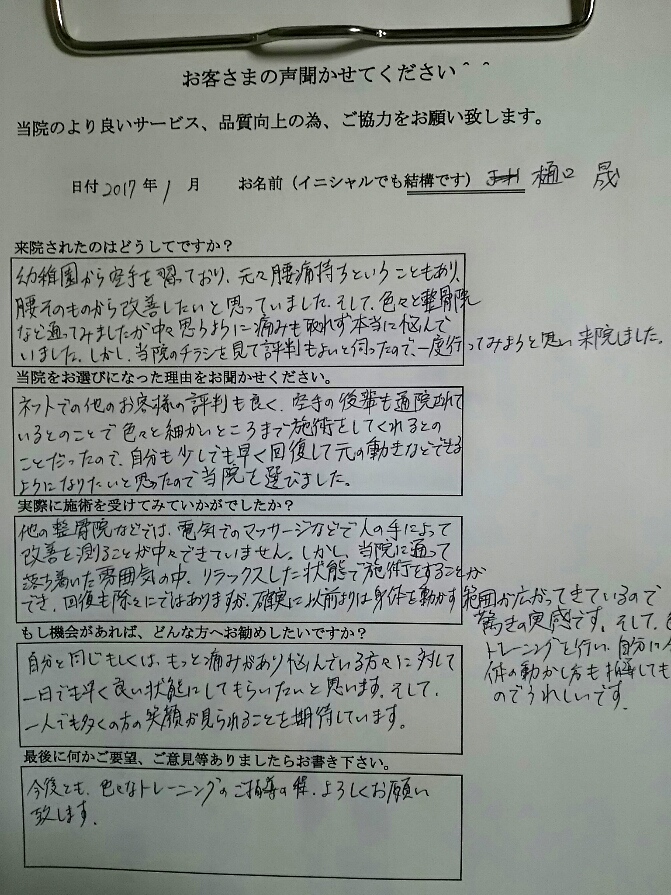 お客さまの声聞かせてください＾＾
当院のより良いサービス、品質向上の為、ご協力をお願い致します。
日付 2017 年 1 月 お名前（イニシャルでも結構です） 樋口 晟
来院されたのはどうしてですか？
幼稚園から空手を習っており、元々腰痛持ちということもあり、
腰そのものから改善したいと思っていました。そして、色々と整骨院
など通ってみましたが中々思うように痛みも取れず本当に悩んで
いました。しかし、当院のチラシを見て評判もよいと伺ったので、一度行ってみようと思い来院しました。
当院をお選びになった理由をお聞かせください。
ネットでの他のお客様の評判も良く、空手の後輩も通院されて
いるとのことで色々と細かいところまで施術をしてくれるとの
ことだったので、自分も少しでも早く回復して元の動きなどできる
ようになりたいと思ったので当院を選びました。
実際に施術を受けてみていかがでしたか？
他の整骨院などでは、電気でのマッサージなどで人の手によって
改善を測ることが中々できていません。しかし、当院に通って
落ち着いた雰囲気の中、リラックスした状態で施術をすることが
でき、回復も除々にではありますが、確実に以前よりは身体を動かす範囲が広がってきているので
驚きの実感です。そして、
トレーニングを行い、自分に
体の動かし方も指導しても
のでうれしいです。
もし機会があれば、どんな方へお勧めしたいですか？
自分と同じもしくは、もっと痛みがあり悩んでいる方々に対して
一日でも早く良い状態にしてもらいたいと思います。そして、
一人でも多くの方の笑顔が見られることを期待しています。
最後に何かご要望、ご意見等ありましたらお書き下さい。
今後とも、色々なトレーニングのご指導の程、よろしくお願い
致します。